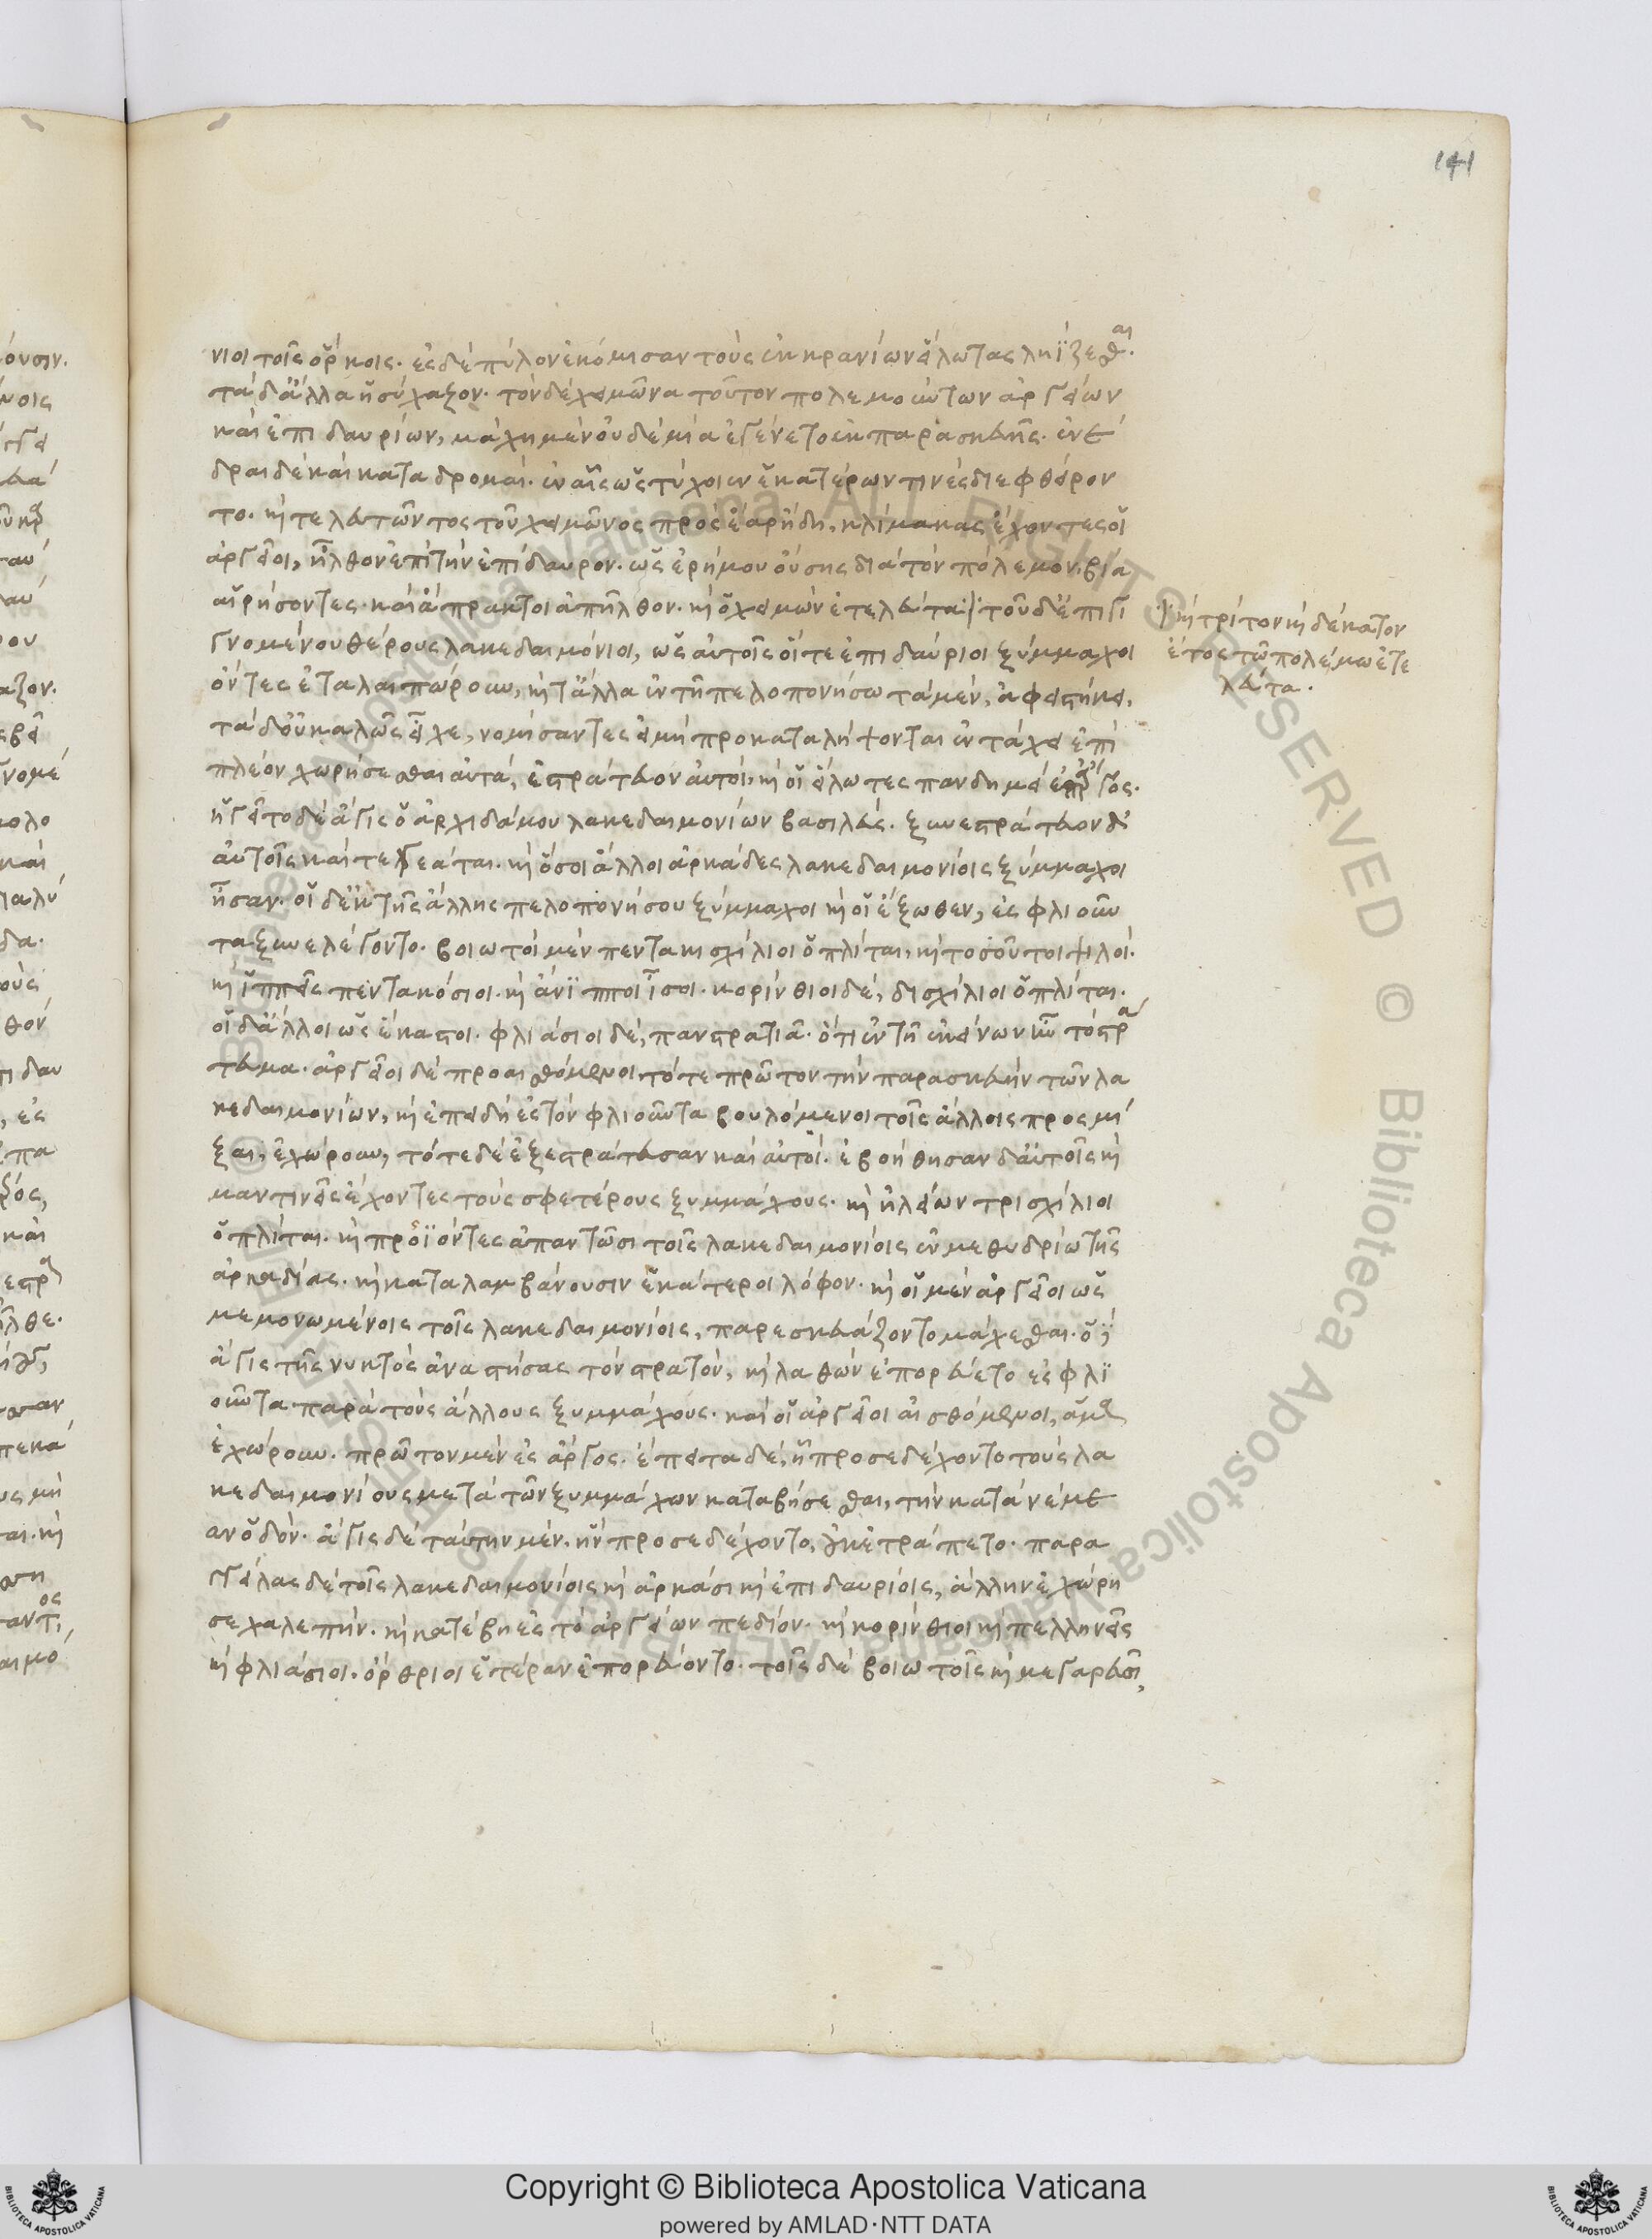 141
νιοι τοῖς ὅρκοις. ἐς δὲ πύλον ἐκόμισαν τοὺς ἐκ κρανίων εἵλωτας ληΐζεσθαι.
τὰ δ' ἄλλα ἡσύχαζον. τὸν δὲ χειμῶνα τοῦτον πολεμούντων ἀργείων
καὶ ἐπιδαυρίων, μάχη μὲν οὐδεμία ἐγένετο ἐκ παρασκευῆς. ἐνέ
δραι δὲ καὶ καταδρομαί. ἐν αἷς ὡς τύχοιεν ἑκατέρων τινὲς διεφθείρον
το. καὶ τελευτῶντος τοῦ χειμῶνος πρὸς ἔαρ ἤδη, κλίμακας ἔχοντες οἱ
ἀργεῖοι, ἦλθον ἐπὶ τὴν ἐπίδαυρον. ὡς ἐρήμου οὔσης διὰ τὸν πόλεμον, βία
αἱρήσοντες. καὶ ἄπρακτοι ἀπῆλθον. καὶ ὁ χειμὼν ἐτελεύτα· τοῦ δ' ἐπιγι
γνομένου θέρους λακεδαιμόνιοι, ὡς αὐτοῖς οἵ τε ἐπιδαύριοι ξύμμαχοι
ὄντες ἐταλαιπώρουν, καὶ τἄλλα ἐν τῆ πελοπονήσω τὰ μὲν, ἀφειστήκει,
τὰ δ' οὐ καλῶς εἶχε, νομίσαντες εἰ μὴ προκαταλήψονται ἐν τάχει ἐπὶ
πλέον χωρήσεσθαι αὐτά, ἐστράτευον αὐτοί, καὶ οἱ εἵλωτες πανδημεὶ ἐπ' ἄργος.
ἡγεῖτο δὲ ἆγις ὁ ἀρχιδάμου λακεδαιμονίων βασιλεύς. ξυνεστράτευον δ'
αὐτοῖς καὶ τεγεάται. καὶ ὅσοι ἄλλοι ἀρκάδες λακεδαιμονίοις ξύμμαχοι
ἦσαν. οἱ δ' ἐκ τῆς ἄλλης πελοπονήσου ξύμμαχοι καὶ οἱ ἔξωθεν, ἐς φλιοῦν
τα ξυνελέγοντο. βοιωτοὶ μὲν πεντακισχίλιοι ὁπλίται, καὶ τοσοῦτοι ψιλοί.
καὶ ἱππεῖς πεντακόσιοι. καὶ ἄνϊπποι ἴσοι. κορίνθιοι δὲ, δισχίλιοι ὁπλίται.
οἱ δ' ἄλλοι ὡς ἕκαστοι. φλιάσιοι δὲ, πανστρατιᾶ. ὅτι ἐν τῆ ἐκείνων ἦν τὸ στρά
τευμα. ἀργεῖοι δὲ προαισθόμενοι τό τε πρῶτον τὴν παρασκευὴν τῶν λα
κεδαιμονίων, καὶ ἐπειδὴ ἐς τὸν φλιοῦντα βουλόμενοι τοῖς ἄλλοις προσμί
ξαι, ἐχώρουν, τότε δὲ ἐξεστράτευσαν καὶ αὐτοί. ἐβοήθησαν δ' αὐτοῖς καὶ
μαντινεῖς ἔχοντες τοὺς σφετέρους ξυμμάχους. καὶ ἠλείων τρισχίλιοι
ὁπλίται. καὶ προϊόντες ἀπαντῶσι τοῖς λακεδαιμονίοις ἐν μεθυδρίω τῆς
ἀρκαδίας. καὶ καταλαμβάνουσιν ἑκάτεροι λόφον. καὶ οἱ μὲν ἀργεῖοι ὡς
μεμονωμένοις τοῖς λακεδαιμονίοις, παρεσκευάζοντο μάχεσθαι. ὁ δὲ
ἆγις τῆς νυκτὸς ἀναστήσας τὸν στρατὸν, καὶ λαθὼν ἐπορεύετο ἐς φλϊ
οῦντα παρὰ τοὺς ἄλλους ξυμμάχους. καὶ οἱ ἀργεῖοι αἰσθόμενοι, ἅμα ἕω
ἐχώρουν. πρῶτον μὲν ἐς ἄργος. ἔπειτα δὲ, ἧ προσεδέχοντο τοὺς λα
κεδαιμονίους μετὰ τῶν ξυμμάχων καταβήσεσθαι, τὴν κατὰ νεμέ
αν ὁδόν. ἆγις δὲ ταύτην μὲν, ἣν προσεδέχοντο, οὐκ ἐτράπετο. παρα
γγείλας δὲ τοῖς λακεδαιμονίοις καὶ ἀρκάσι καὶ ἐπιδαυρίοις, ἄλλην ἐχώρη
σε χαλεπήν. καὶ κατέβη ἐς τὸ ἀργείων πεδίον. καὶ κορίνθιοι καὶ πελληνεῖς
καὶ φλιάσιοι. ὄρθριοι ἑτέραν ἐπορεύοντο. τοῖς δὲ βοιωτοῖς καὶ μεγαρεῦσι,
καὶ τρίτον καὶ δέκατον
ἔτος τῶ πολέμω ἐτε
λεύτα.
Copyright © Biblioteca Apostolica Vaticana
powered by AMLAD·NTT DATA